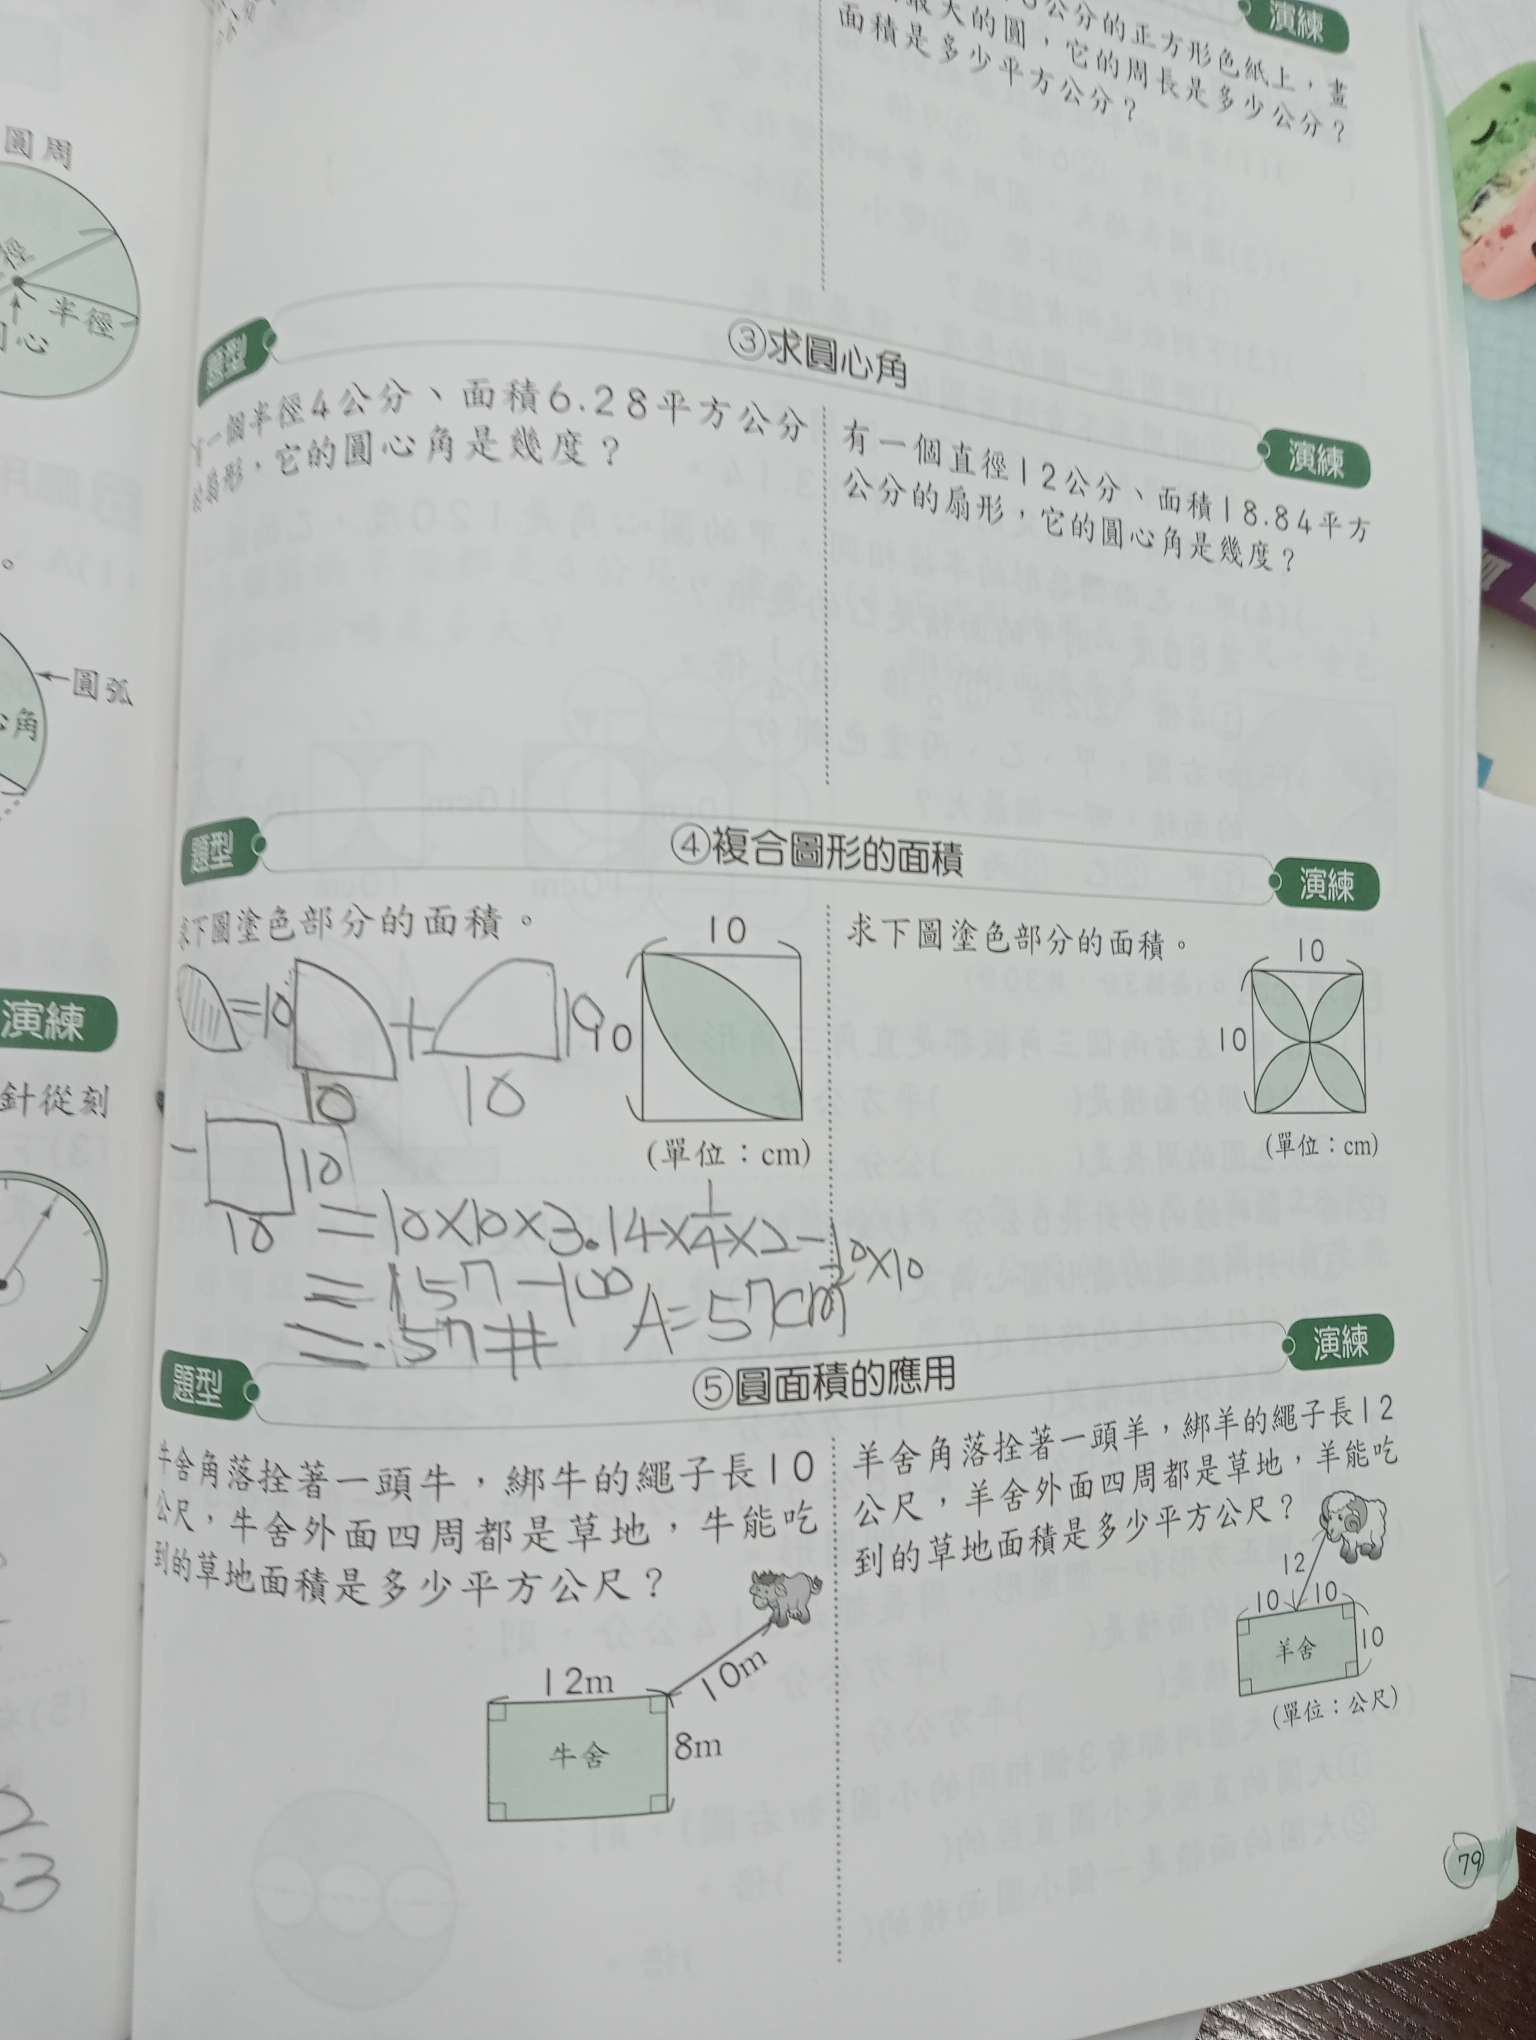 公分的正方形色紙上，畫
最大的圓，它的周長是多少公分？
面積是多少平方公分？
演練
圓周
半徑
心
圓弧
角
演練
針從刻
題型
③求圓心角
演練
一個半徑4公分、面積6.28平方公分
扇形，它的圓心角是幾度？
有一個直徑12公分、面積18.84平方
公分的扇形，它的圓心角是幾度？
題型
④複合圖形的面積
演練
求下圖塗色部分的面積。
10
10
(單位：cm)
= 10
10
+
10
10
-
10
10
=10×10×3.14×1/4×2-10×10
=157-100
=57# A=57cm²
求下圖塗色部分的面積。
10
10
(單位：cm)
題型
⑤圓面積的應用
演練
牛舍角落拴著一頭牛，綁牛的繩子長10
公尺，牛舍外面四周都是草地，牛能吃
到的草地面積是多少平方公尺？
12m
10m
牛舍
8m
羊舍角落拴著一頭羊，綁羊的繩子長12
公尺，羊舍外面四周都是草地，羊能吃
到的草地面積是多少平方公尺？
12
10
10
羊舍
10
(單位：公尺)
79